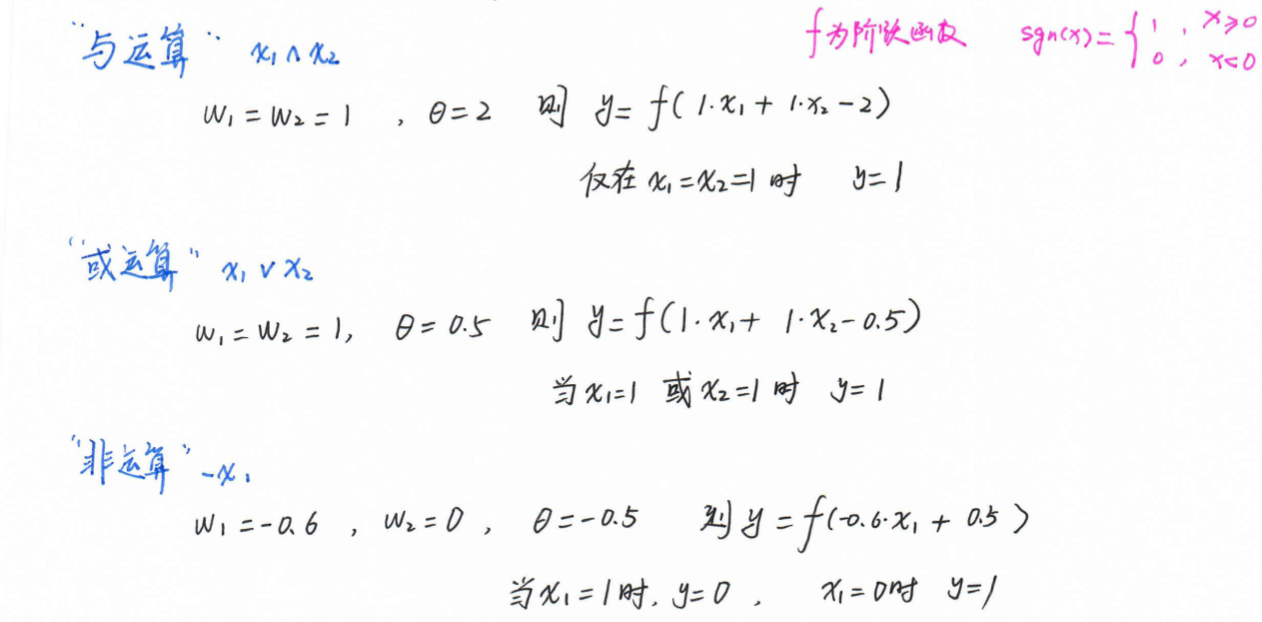 “与运算” x₁∧x₂
f为阶跃函数 sgn(x)={1, x≥0
0, x<0
w₁=w₂=1, θ=2 则 y=f(1·x₁+1·x₂-2)
仅在 x₁=x₂=1 时 y=1
“或运算” x₁∨x₂
w₁=w₂=1, θ=0.5 则 y=f(1·x₁+1·x₂-0.5)
当x₁=1 或x₂=1 时 y=1
“非运算” -x₁
w₁=-0.6, w₂=0, θ=-0.5 则 y=f(-0.6·x₁+0.5)
当x₁=1时, y=0, x₁=0时 y=1